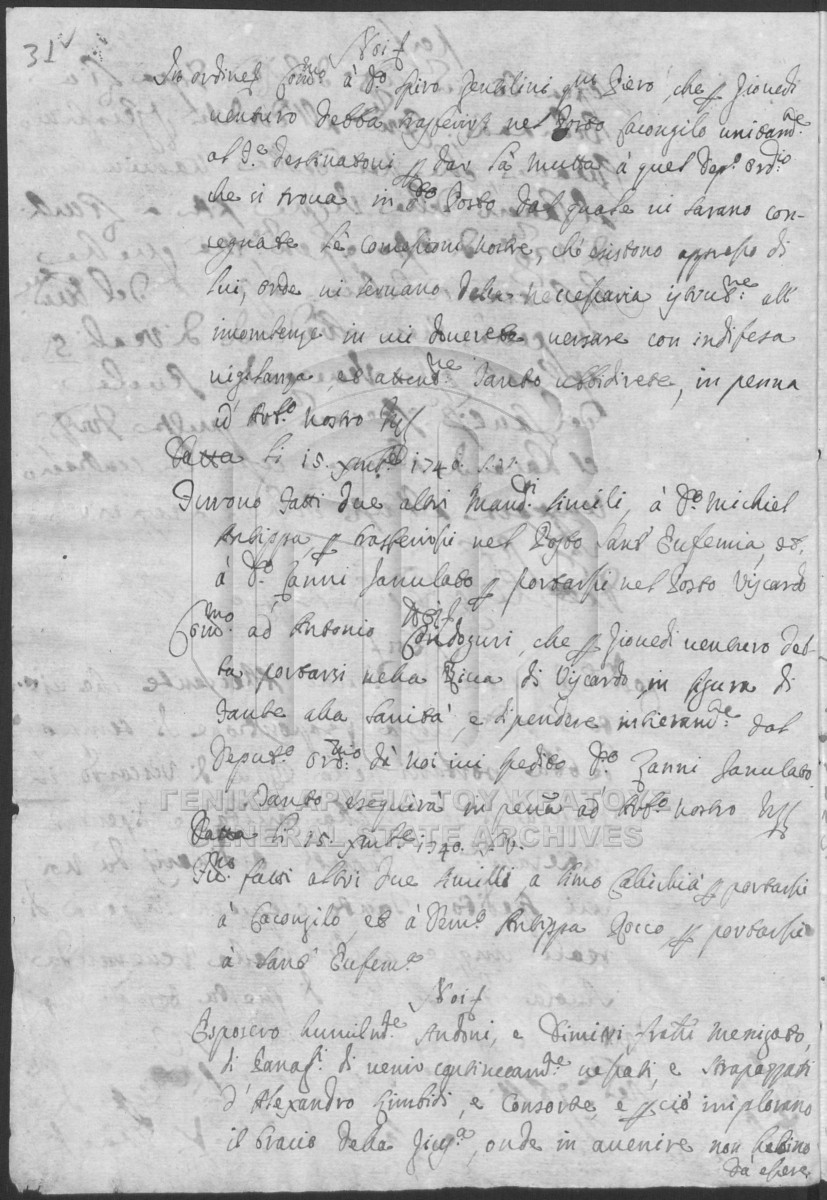 31
Noi
In ordinel Com.mo à D.o Spiro Zentilini q.m Piero, che p Giovedi
venturo debba trasferirsi nel Posto Cacongilo unitam.te
al D.o destinatoni p dar la mutta à quel Dep.o ord.io
che si trova in d.o Posto dal quale vi sarano con-
segnate le comissioni nostre, ch'esistono appresso di
lui, onde vi servano della necessaria istruz.ne all'
incombenza in cui dovrete versare con indifesa
vigilanza, et attenz.ne Tanto ubbidirete, in penna
ad Arb.o Nostro
Datta li 15. Xmb.e 1740. S.V.
Furono fatti due altri Mand.ti simili, à D.o Michiel
Antippa, p trasferirsi nel Posto Sant' Eufemia, et
à D.o Zanni Janulato p portarsi nel Posto Viscardo
Noi
Com.mo ad Antonio Condoguri, che p Giovedi venturo deb-
ba portarsi nella Riva di Viscardo, in figura di
Fante alla Sanità, e dipendere intieram.te dal
Deput.o ord.rio dà noi ivi spedito D.o Zanni Janulato.
Tanto eseguirà in pena ad Arb.o nostro
Datta li 15. Xmb.e 1740. S.V.
ΓΕΝΙΚΑ ΑΡΧΕΙΑ ΤΟΥ ΚΡΑΤΟΥΣ
GENERAL STATE ARCHIVES
Fu.no fatti altri due simili, a Simo p portarsi
à Cacongilo, et à Dem.o Antippa Rocco, p portarsi
à Sant' Eufem.a
Noi
Esposero humilm.te Andoni, e Dimitri fratti Menigato,
di Panag.i di venir continuam.te vessati, e strapazzati
d'Alexandro Limbidi, e Consorte, e p ciò implorano
il bracio della Giust.a, onde in avenire non habino
da esser